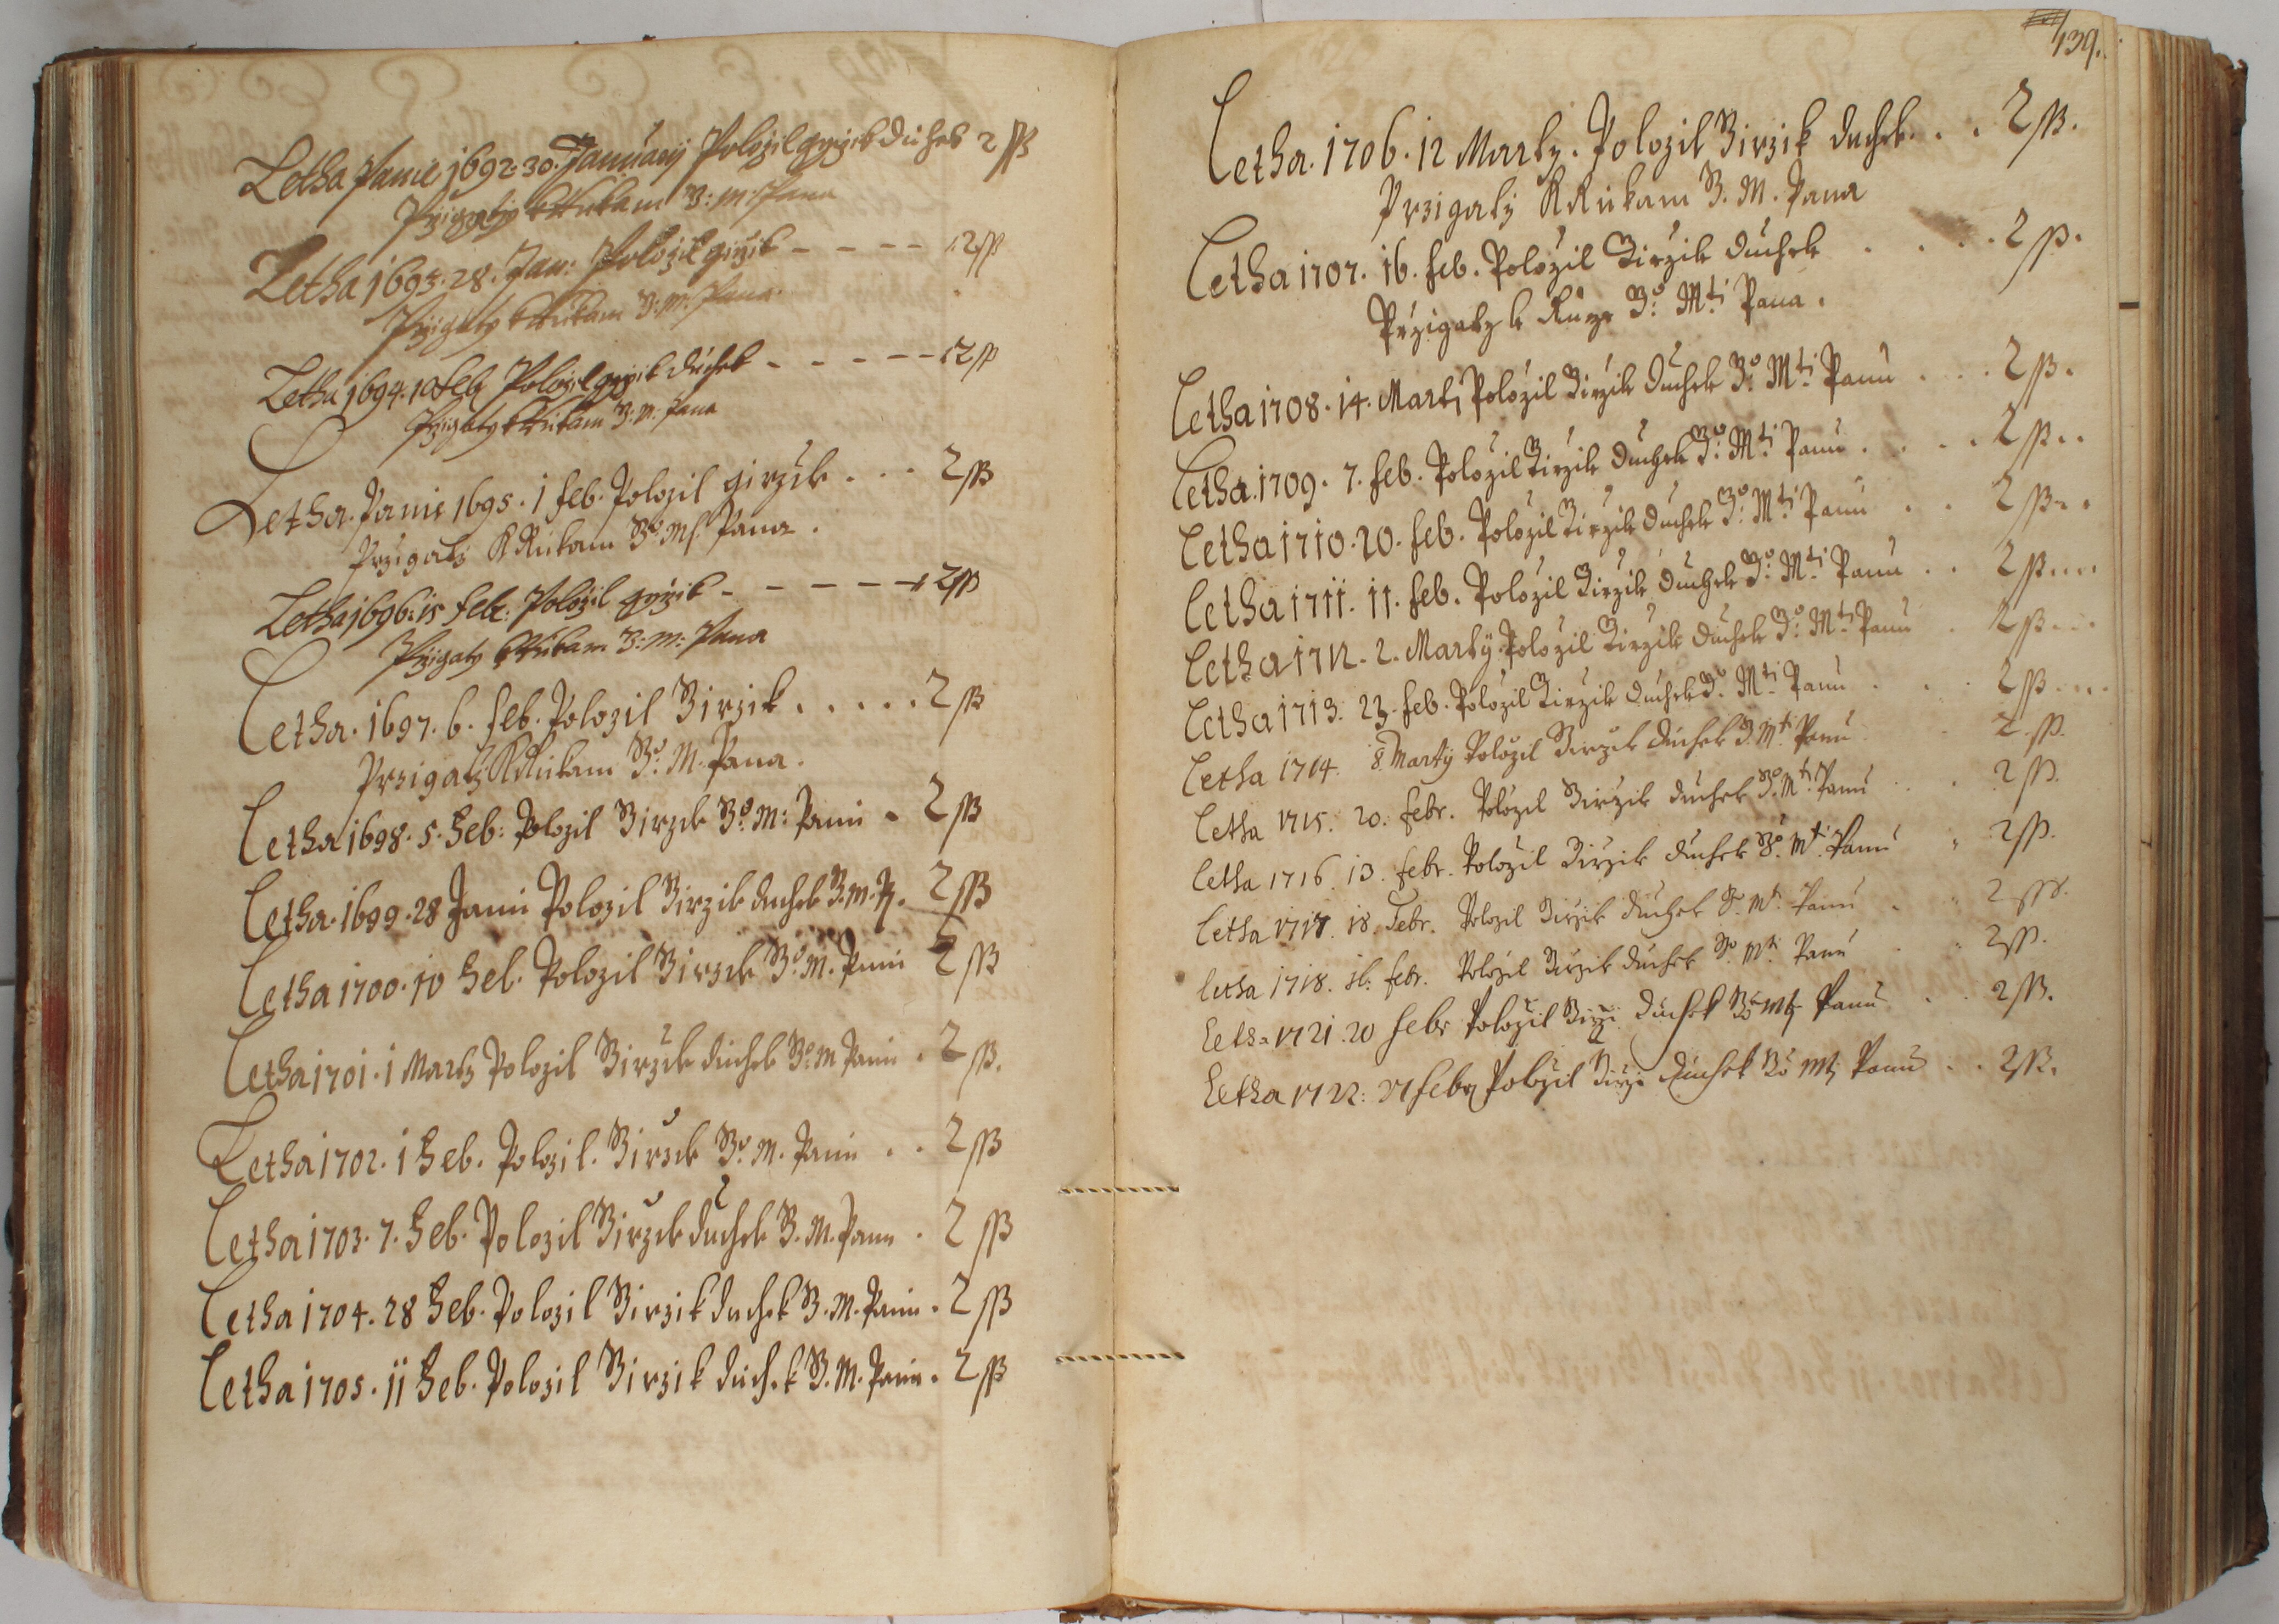 Letha Panie 1692. 30. January Polozil gyrzik duchek 2 ß
Przigaty k Rukam J: M: Pana
Letha 1693. 28. Jan: Polozil girzik - - - - 2 ß
Przigaty k Rukam J: M: Pana
Letha 1694. 10 Feb Polozil gyrzik duchek - - - - - 2 ß
Przigaty k Rukam J: M. Pana
Letha. Panie 1695. 1 feb. Polozil girzik . . . 2 ß
Przigaty k Rukam Jº Ms. Pana.
Letha 1696: 15 Febr: Polozil gyrzik - - - - - 2 ß
Przigaty k Rukam J: M: Pana
Letha. 1697. 6. feb. Polozil Jirzik . . . . . 2 ß
Przigaty k Rukam Jº. M. Pana.
Letha 1698. 5. Feb: Polozil Jirzik Jº. M: Panu . 2 ß
Letha. 1699. 28 Janu Polozil Jirzik duchek J. M. P. 2 ß
Letha 1700. 10 Feb. Polozil Jirzik Jº. M. Panu 2 ß
Letha 1701. 1 Marty Polozil Jirzik duchek Jº M Panu . 2 ß.
Letha 1702. 1 Feb. Polozil. Jirzik Jº. M. Panu . . 2 ß
Letha 1703. 7. Feb. Polozil Jirzik duchek J. M. Panu . 2 ß
Letha 1704. 28 Feb. Polozil Jirzik duchek J. M. Panu . 2 ß
Letha 1705. 11 Feb. Polozil Jirzik duchek J. M. Panu . 2 ß
139.
Letha. 1706. 12 Marty. Polozil Jirzik duchek . . 2 ß.
Przigaty k Rukam J. M. Pana
Letha 1707. 16. feb. Polozil Jirzik duchek . . . . 2 ß.
Przigaty k Ruze Jº. Mti Pana.
Letha 1708. 14. Marty Polozil Jirzik duchek Jº. Mti Panu . . . 2 ß.
Letha. 1709. 7. feb. Polozil Jirzik duchek Jº. Mti Panu . . . . 2 ß..
Letha 1710. 20. feb. Polozil Jirzik duchek Jº. Mti Panu . . 2 ß..
Letha 1711. 11. feb. Polozil Jirzik duchek Jº. Mti Panu . . 2 ß....
Letha 1712. 2. Marty. Polozil Jirzik duchek Jº. Mti Panu . 2 ß...
Letha 1713. 23. feb. Polozil Jirzik duchek Jº. Mti Panu . . . 2 ß....
Letha 1714. 8. Marty Polozil Jirzik duchek J. Mti Panu . . 2. ß.
Letha 1715. 20. febr. Polozil Jirzik duchek Jº. Mti Panu . . 2 ß.
Letha 1716. 13. febr. Polozil Jirzik duchek Jº. Mti Panu . 2 ß.
Letha 1717. 18. Febr. Polozil Jirzik duchek Jº. Mti. Panu . . 2 ß.
Letha 1718. 16. febr. Polozil Jirzik duchek Jº. Mti Panu . . 2 ß.
Letha 1721. 20 febr Polozil Jirzi duchek Jº Mti Panu . . 2 ß.
Letha 1722: febr Polozil Jirzi duchek Jº Mti Panu . . 2 ß.